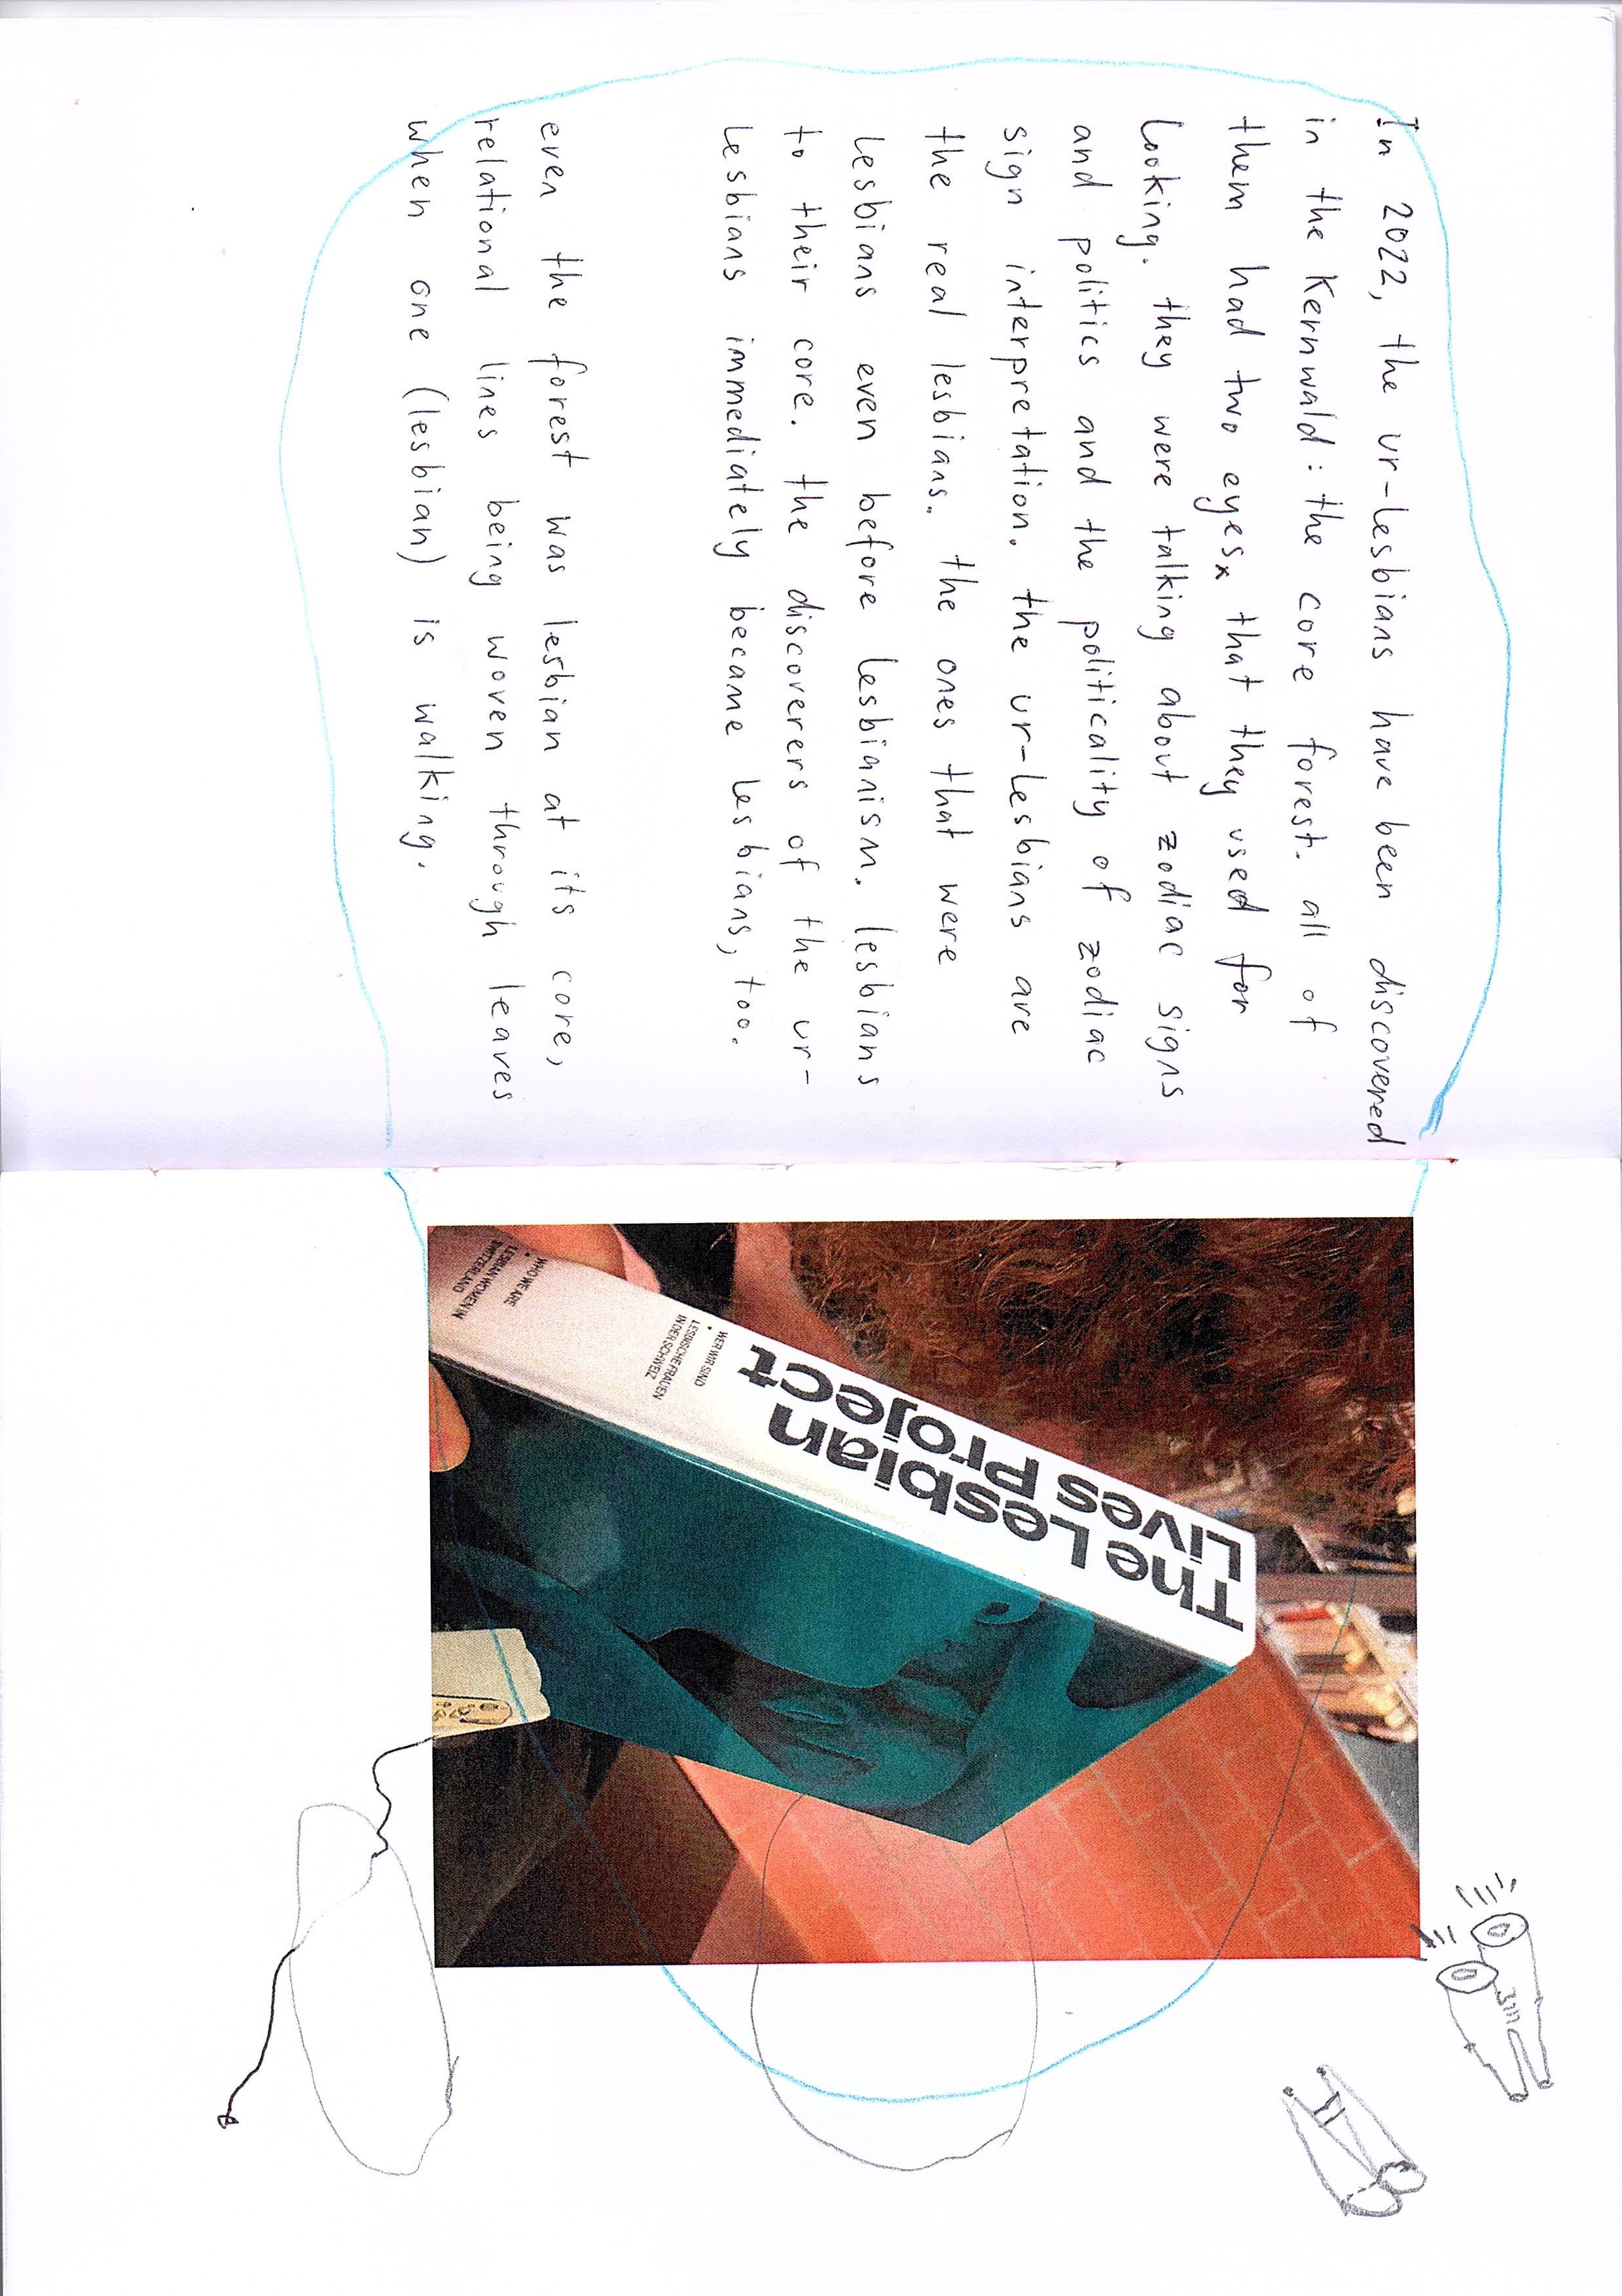 In 2022, the ur-lesbians have been discovered
in the Kernwald: the core forest. all of
them had two eyes that they used for
looking. they were talking about zodiac signs
and politics and the politicality of zodiac
sign interpretation. the ur-lesbians are
the real lesbians. the ones that were
lesbians even before lesbianism. lesbians
to their core. the discoverers of the ur-
lesbians immediately became lesbians, too.
even the forest was lesbian at its core,
relational lines being woven through leaves
when one (lesbian) is walking.
The Lesbian
Lives Project
WER WIR SIND
•
LESBISCHE FRAUEN
IN DER SCHWEIZ
WHO WE ARE
•
LESBIAN WOMEN IN
SWITZERLAND